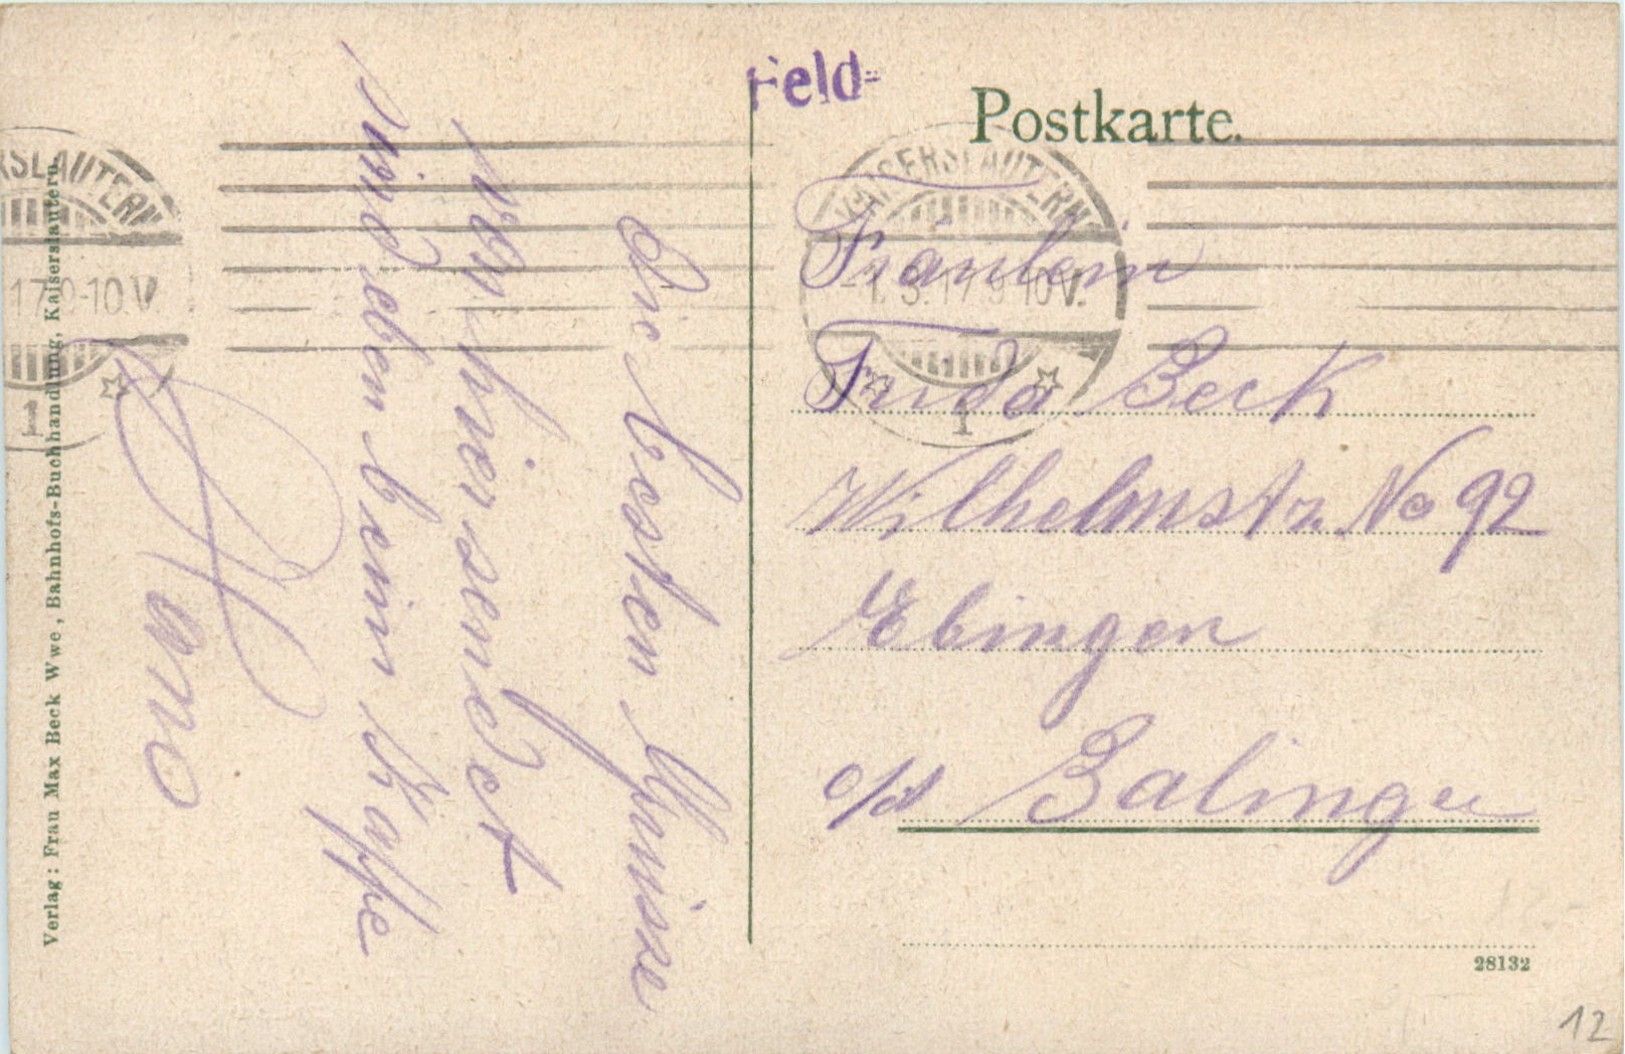 Feld=
Postkarte.
KAISERSLAUTERN
-1.3.17.9-10V.
1
RSLAUTERN
17.9-10V.
1
Die besten Grüsse
von hier sendet
sind eben beim Kaffe
Fräulein
Frida Beck
Wilhelmstr. No 92
Ebingen
Balingen
Verlag: Frau Max Beck Wwe, Bahnhofs-Buchhandlung, Kaiserslautern.
28132
12